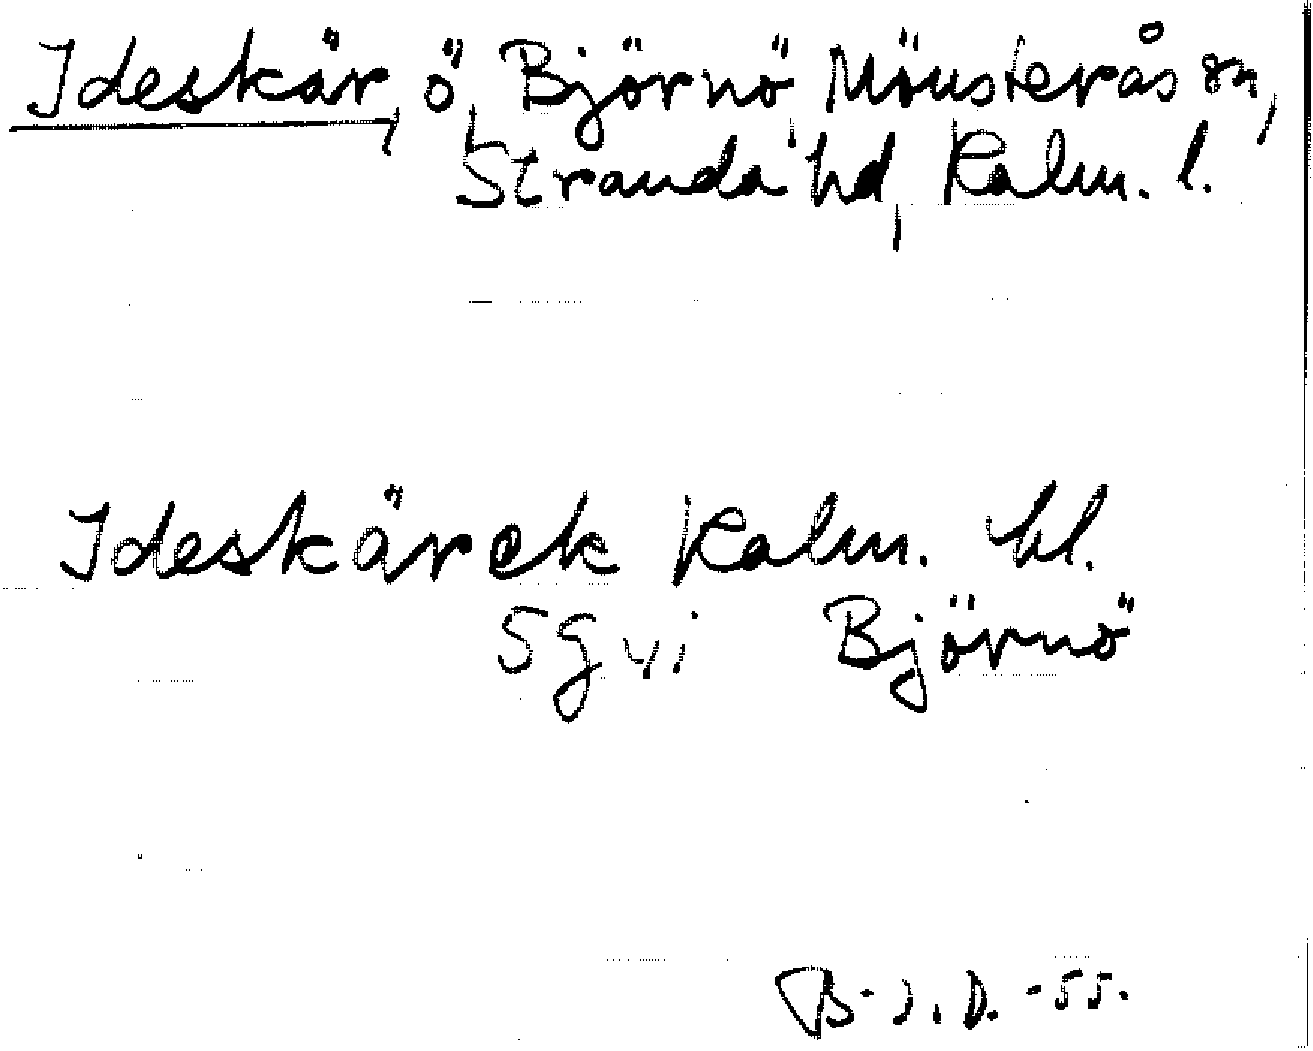 Ideskär, ö, Björnö, Mönsterås sn,
Stranda hd, Kalm. l.
Ideskärek Kalm. hl.
Björnö
B-J. D. -55.